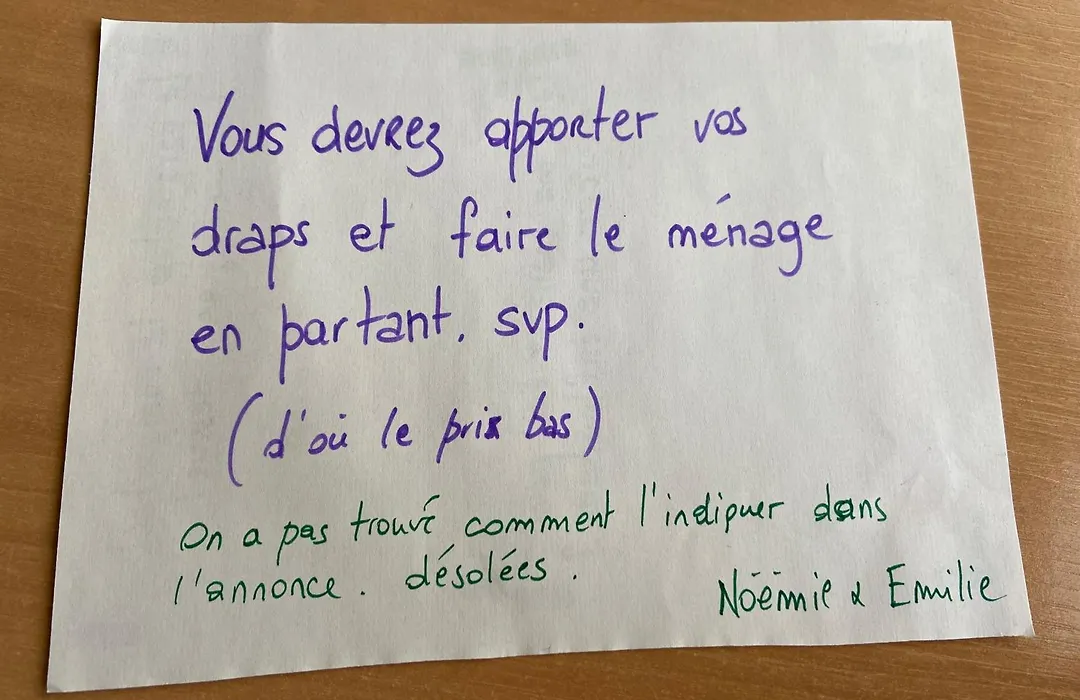 Vous devrez apporter vos
draps et faire le ménage
en partant. svp.
(d'où le prix bas)
On a pas trouvé comment l'indiquer dans
l'annonce. désolées.
Noëmie & Emilie